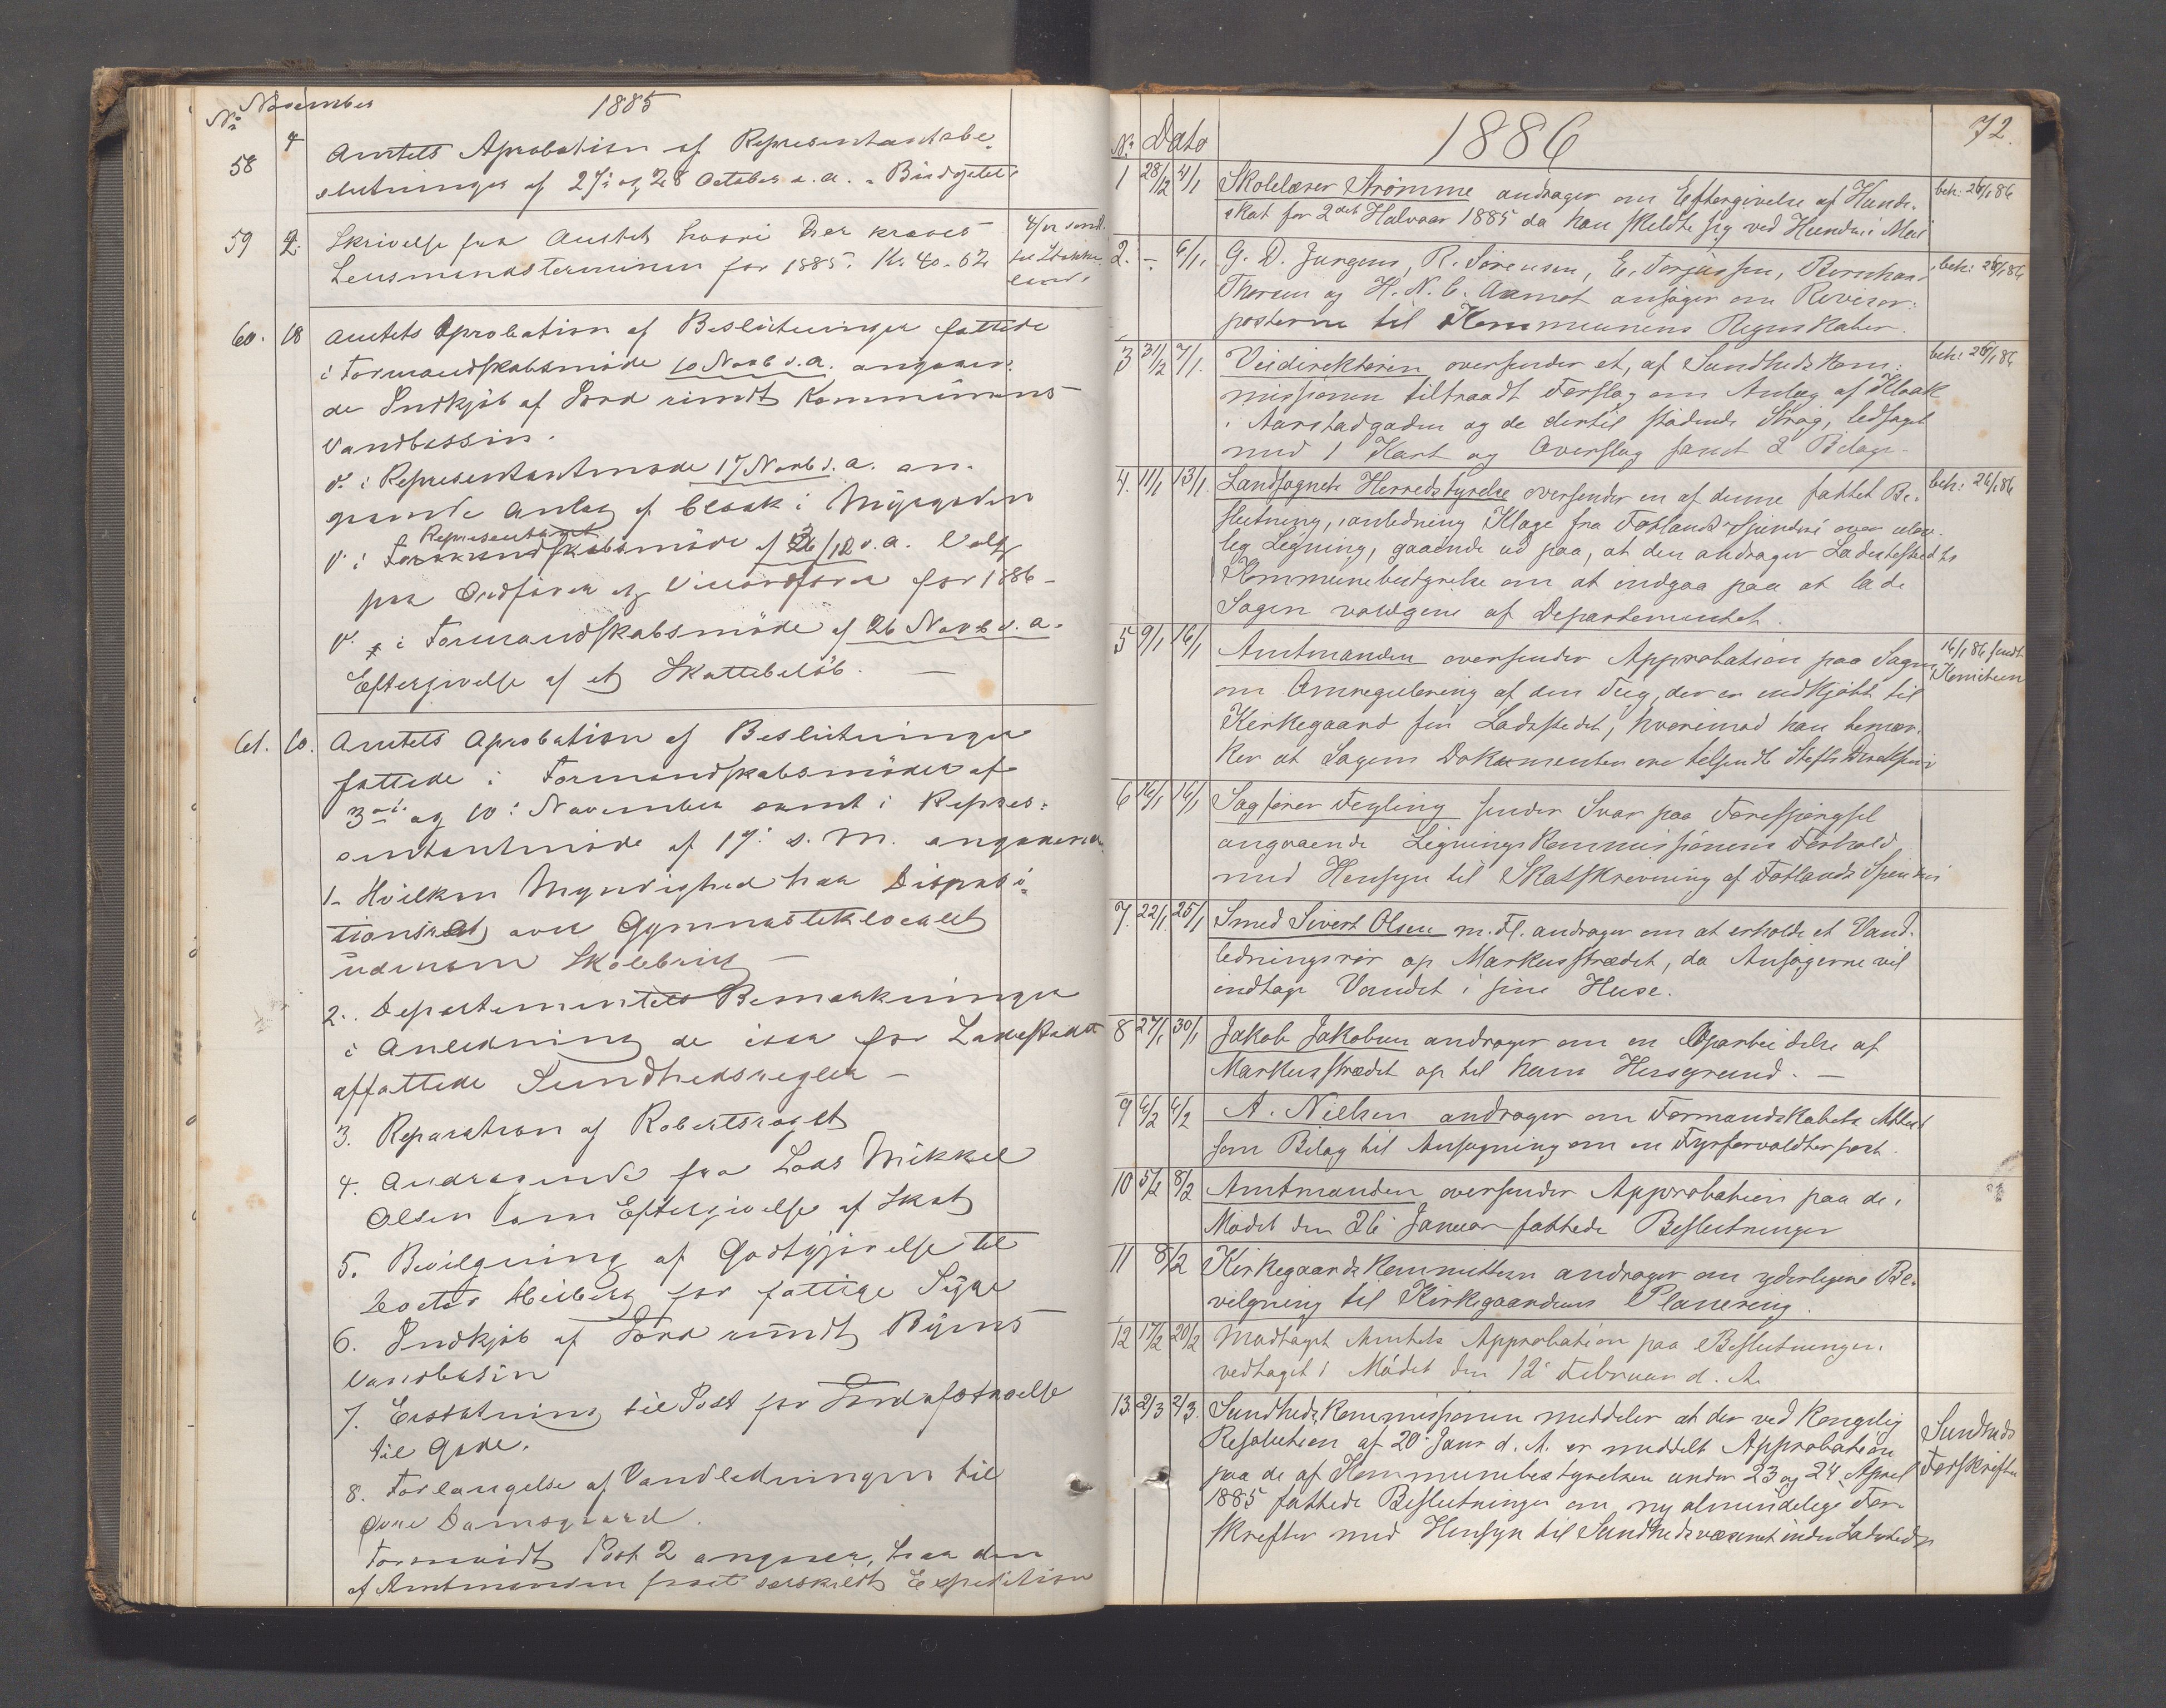 No November 1885
58 4 Amtets Aprobation af Representantsbe-
slutninger af 27 og 28 October d. a. - Budgettet
59 2. Skrivelse fra Amtet hvori der kræves 4/12 send.
Lensmandsterminen for 1885. Kr. 40-62
60. 18 Amtets Aprobation af Beslutninger fattede
i Formandskabsmöde 10 Novb d. a. angaaen-
de Indkjöb af Jord rundt Kommunens
Vandbassin.
do i Representantmöde 17 Novb d. a. an-
gaaende Anlæg af Cloak i Myrgaden
Representant
do i Formandskabsmöde af 26/12 d. a. Valg
paa Ordförer og Viceordförer for 1886-
do i Formandskabsmöde af 26 Novb d. a.
Eftergivelse af et Skattebelöb. —
61. 10. Amtets Aprobation af Beslutninger
fattede i Formandskabsmöder af
3die og 10: November samt i Repres-
entantmöde af 17: s. M. angaaende
1. Hvilken Myndighed har Disposi-
tionsret over Gymnastiklocalet
udenom Skolebrug —
2. Departementets Bemærkninger
i Anledning de for Ladestedet
affattede Sundhedsregler —
3. Reparation af
4. Andragende fra Lods Mikkel
Olsen om Eftergivelse af Skat
5. Bevilgning af Godtgjörelse til
Doctor Heiberg for fattige Syge
6. Indkjöb af Jord rundt Byens
Vandbasin
7. Erstatning til Post for Jordafstaaelse
til Gade.
8. Forlængelse af Vandledningen til
Övre Damsgaard.
Forsaavidt Post 2 angaaer, har den
af Amtmanden faaet særskildt Expedition
No Dato 1886 72.
1 28/12 4/1 Skolelærer Strömme andrager om Eftergivelse af Hunde- beh: 26/1 86
skat for 2det Halvaar 1885 da han skildte sig ved Hunden i Mai
2. - 6/1. G. D. Jurgens, R. Sörensen, E. Torjussen, Bernhard beh: 26/1 86
Thorsen og H. N. C. Aamot ansöger om Revisor-
posterne til Kommunens Regnskaber.
3 31/12 7/1. Veidirektören oversender et, af Sundhedskom- beh: 26/1 86
missionen tiltraadt Forslag om Anlæg af Kloak
i Aarstadgaden og de dertil stödende Strög, ledsaget
med 1 Kart og Overslag samt 2 Bilage.
4. 11/1 13/1. Landsognets Herredstyrelse oversender en af denne fattet Be- beh: 26/1 86
slutning, i anledning Klage fra Fotlands Spinderi over ulov-
lig Ligning, gaaende ud paa, at den andrager Ladestedets
Kommunebestyrelse om at indgaa paa at lade
Sagen voldgive af Departementet.
5 9/1 16/1 Amtmanden oversender Approbation paa Sagen 16/1 86 sendt
om Omregulering af den Teig, der er indkjöbt til Komiteen
Kirkegaard for Ladestedet, hvorimod han bemær-
ker at Sagens Dokumenter ere tilsendt Stiftsdirektionen
6 14/1 16/1 Sagförer Fegling sender Svar paa Forespörgsel
angaaende Ligningskommissionens Forhold
med Hensyn til Skatskrivning af Fotlands Spinderi
7. 22/1. 25/1 Smed Sivert Olsen m. Fl. andrager om at erholde et Vand-
ledningsrör op Markusstrædet, da Ansögerne vil
indtage Vandet i sine Huse.
8 27/1 30/1 Jakob Jakobsen andrager om en Oparbeidelse af
Markusstrædet op til hans Husgrund. —
9 4/2 4/2 A. Nielsen andrager om Formandskabets Attest
som Bilag til Ansögning om en Fyrforvalterpost.
10 5/2 8/2 Amtmanden oversender Approbation paa de i
Mödet den 26 Januar fattede Beslutninger
11 8/2 Kirkegaardskommitteen andrager om yderligere Be-
vilgning til Kirkegaardens Planering.
12 17/2 20/2 Modtaget Amtets Approbation paa Beslutninger,
vedtaget i Mödet den 12te Februar d. A.
13. 2/3 2/3. Sundhedskommissionen meddeler at der ved Kongelig Sundheds
Resolution af 20 Janr d. A. er meddelt Approbation Forskrifter
paa de af Kommunebestyrelsen under 23 og 24 April
1885 fattede Beslutninger om ny almindelige For-
skrifter med Hensyn til Sundhedsvæsenet inden Ladestedet